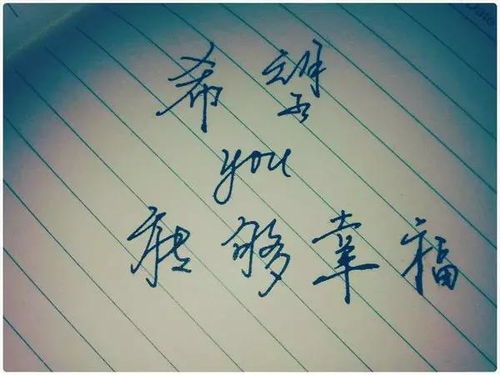 希望
you
能够幸福